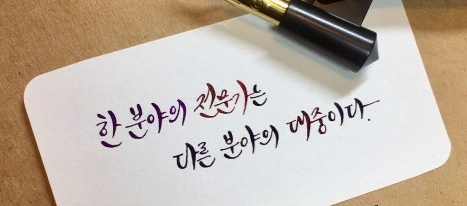 한 분야의 전문가는
다른 분야의 대중이다.